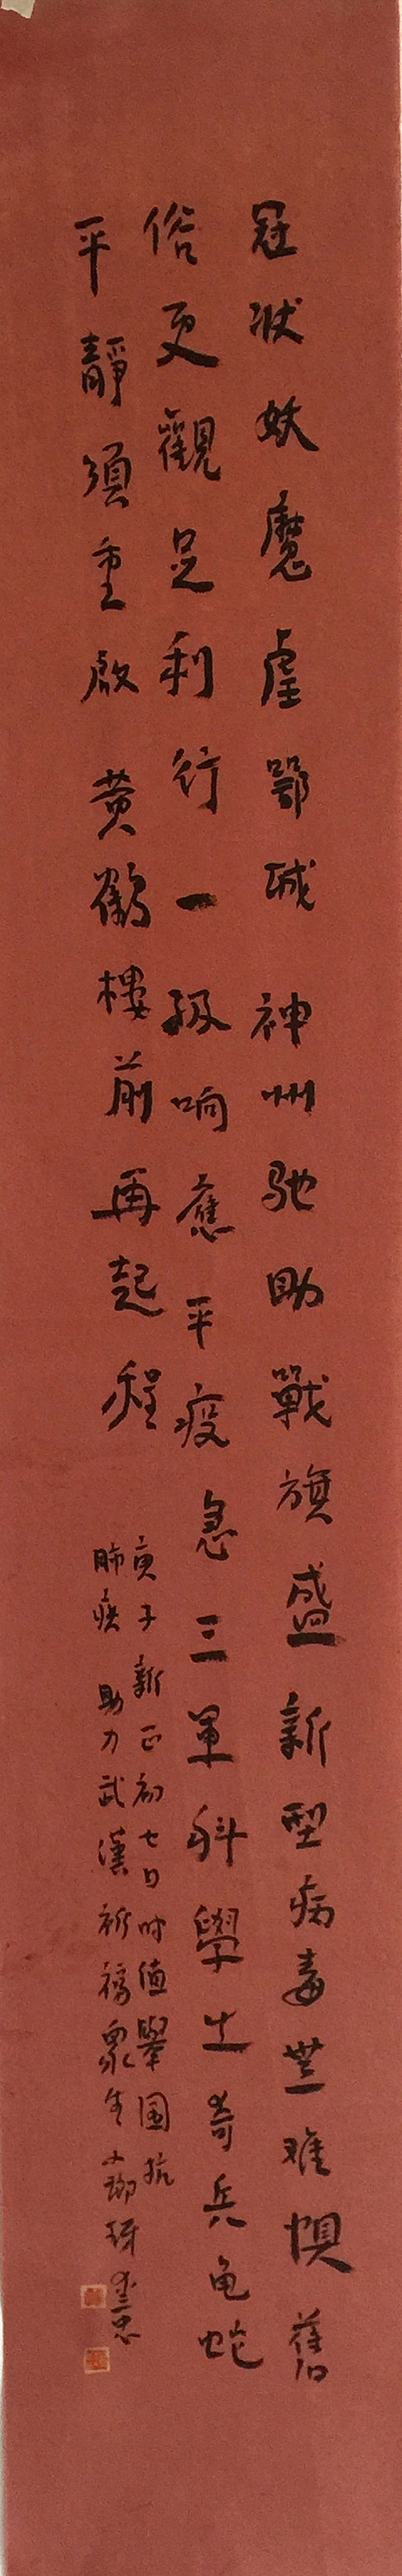 冠狀妖魔虐鄂城神州馳助戰旗盛新型病毒無难惧舊
俗更觀足利行一級响應平疫急三軍科學出奇兵龟蛇
平靜須重啟黄鶴樓前再起程
庚子新正初七日时值舉国抗
肺疾助力武漢祈福衆生